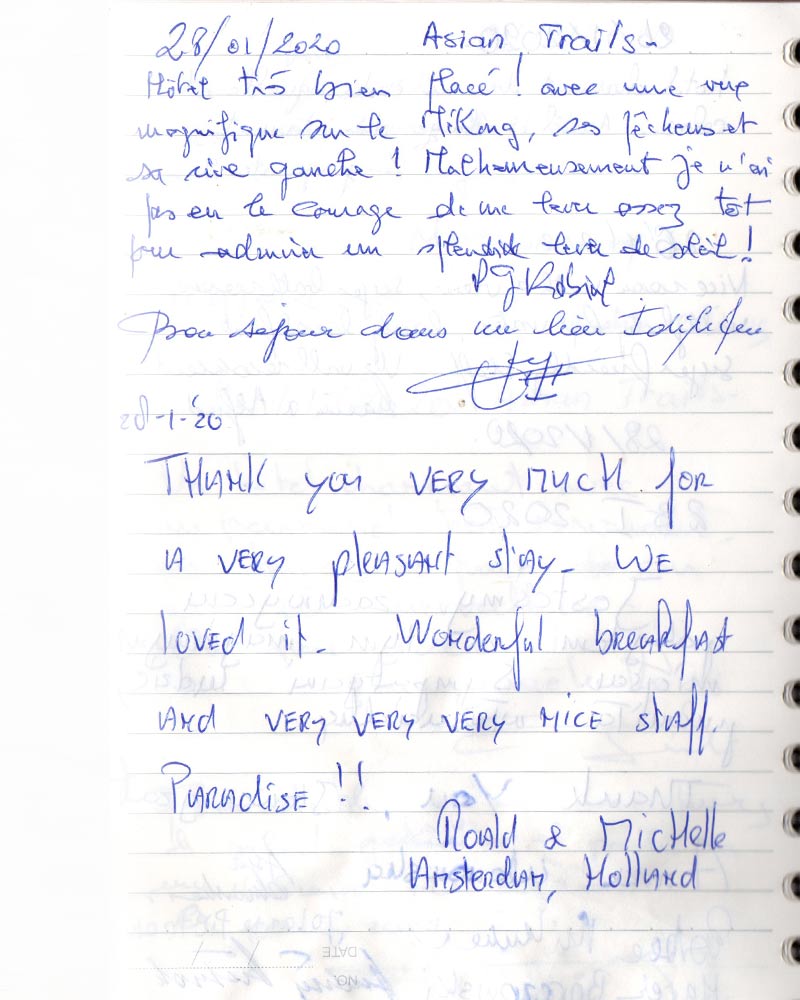 28/01/2020 Asian Trails-
Hôtel très bien placé ! avec une vue
magnifique sur le Mékong, ses pêcheurs et
sa rive gauche ! Malheureusement je n'ai
pas eu le courage de me lever assez tôt
pour admirer un splendide lever de soleil !
Bon séjour dans un lieu
28-1-'20
THANK you VERY MUCH for
A VERY pleASANT stAy- WE
loVEd it- WoNderful breAkfAst
ANd VERY VERY VERY NICE stAff.
PARADISE !!
& MicHelle
AMsterdAM, HollANd
DATE
NO.